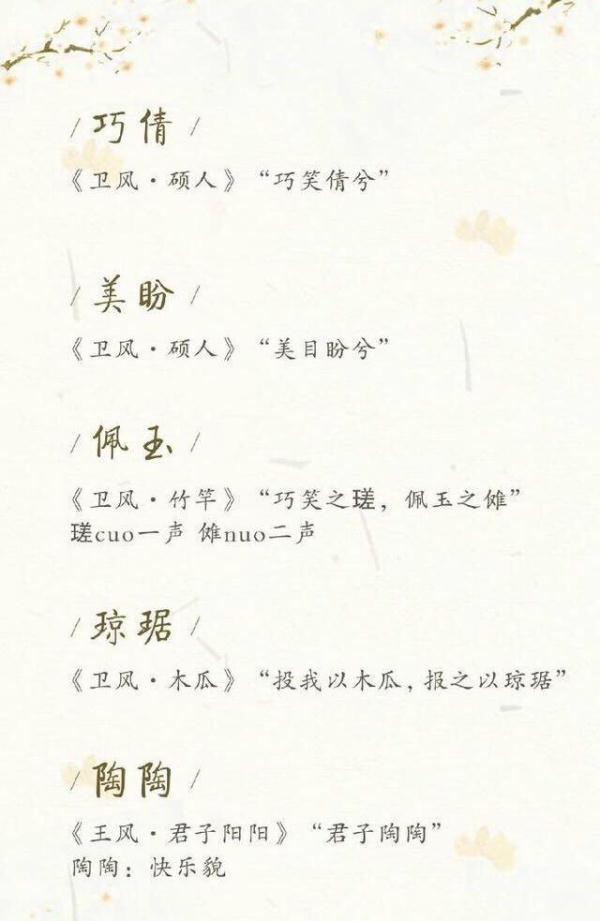 /巧倩/
《卫风·硕人》“巧笑倩兮”
/美盼/
《卫风·硕人》“美目盼兮”
/佩玉/
《卫风·竹竿》“巧笑之瑳，佩玉之傩”
瑳cuo一声 傩nuo二声
/琼琚/
《卫风·木瓜》“投我以木瓜，报之以琼琚”
/陶陶/
《王风·君子阳阳》“君子陶陶”
陶陶：快乐貌